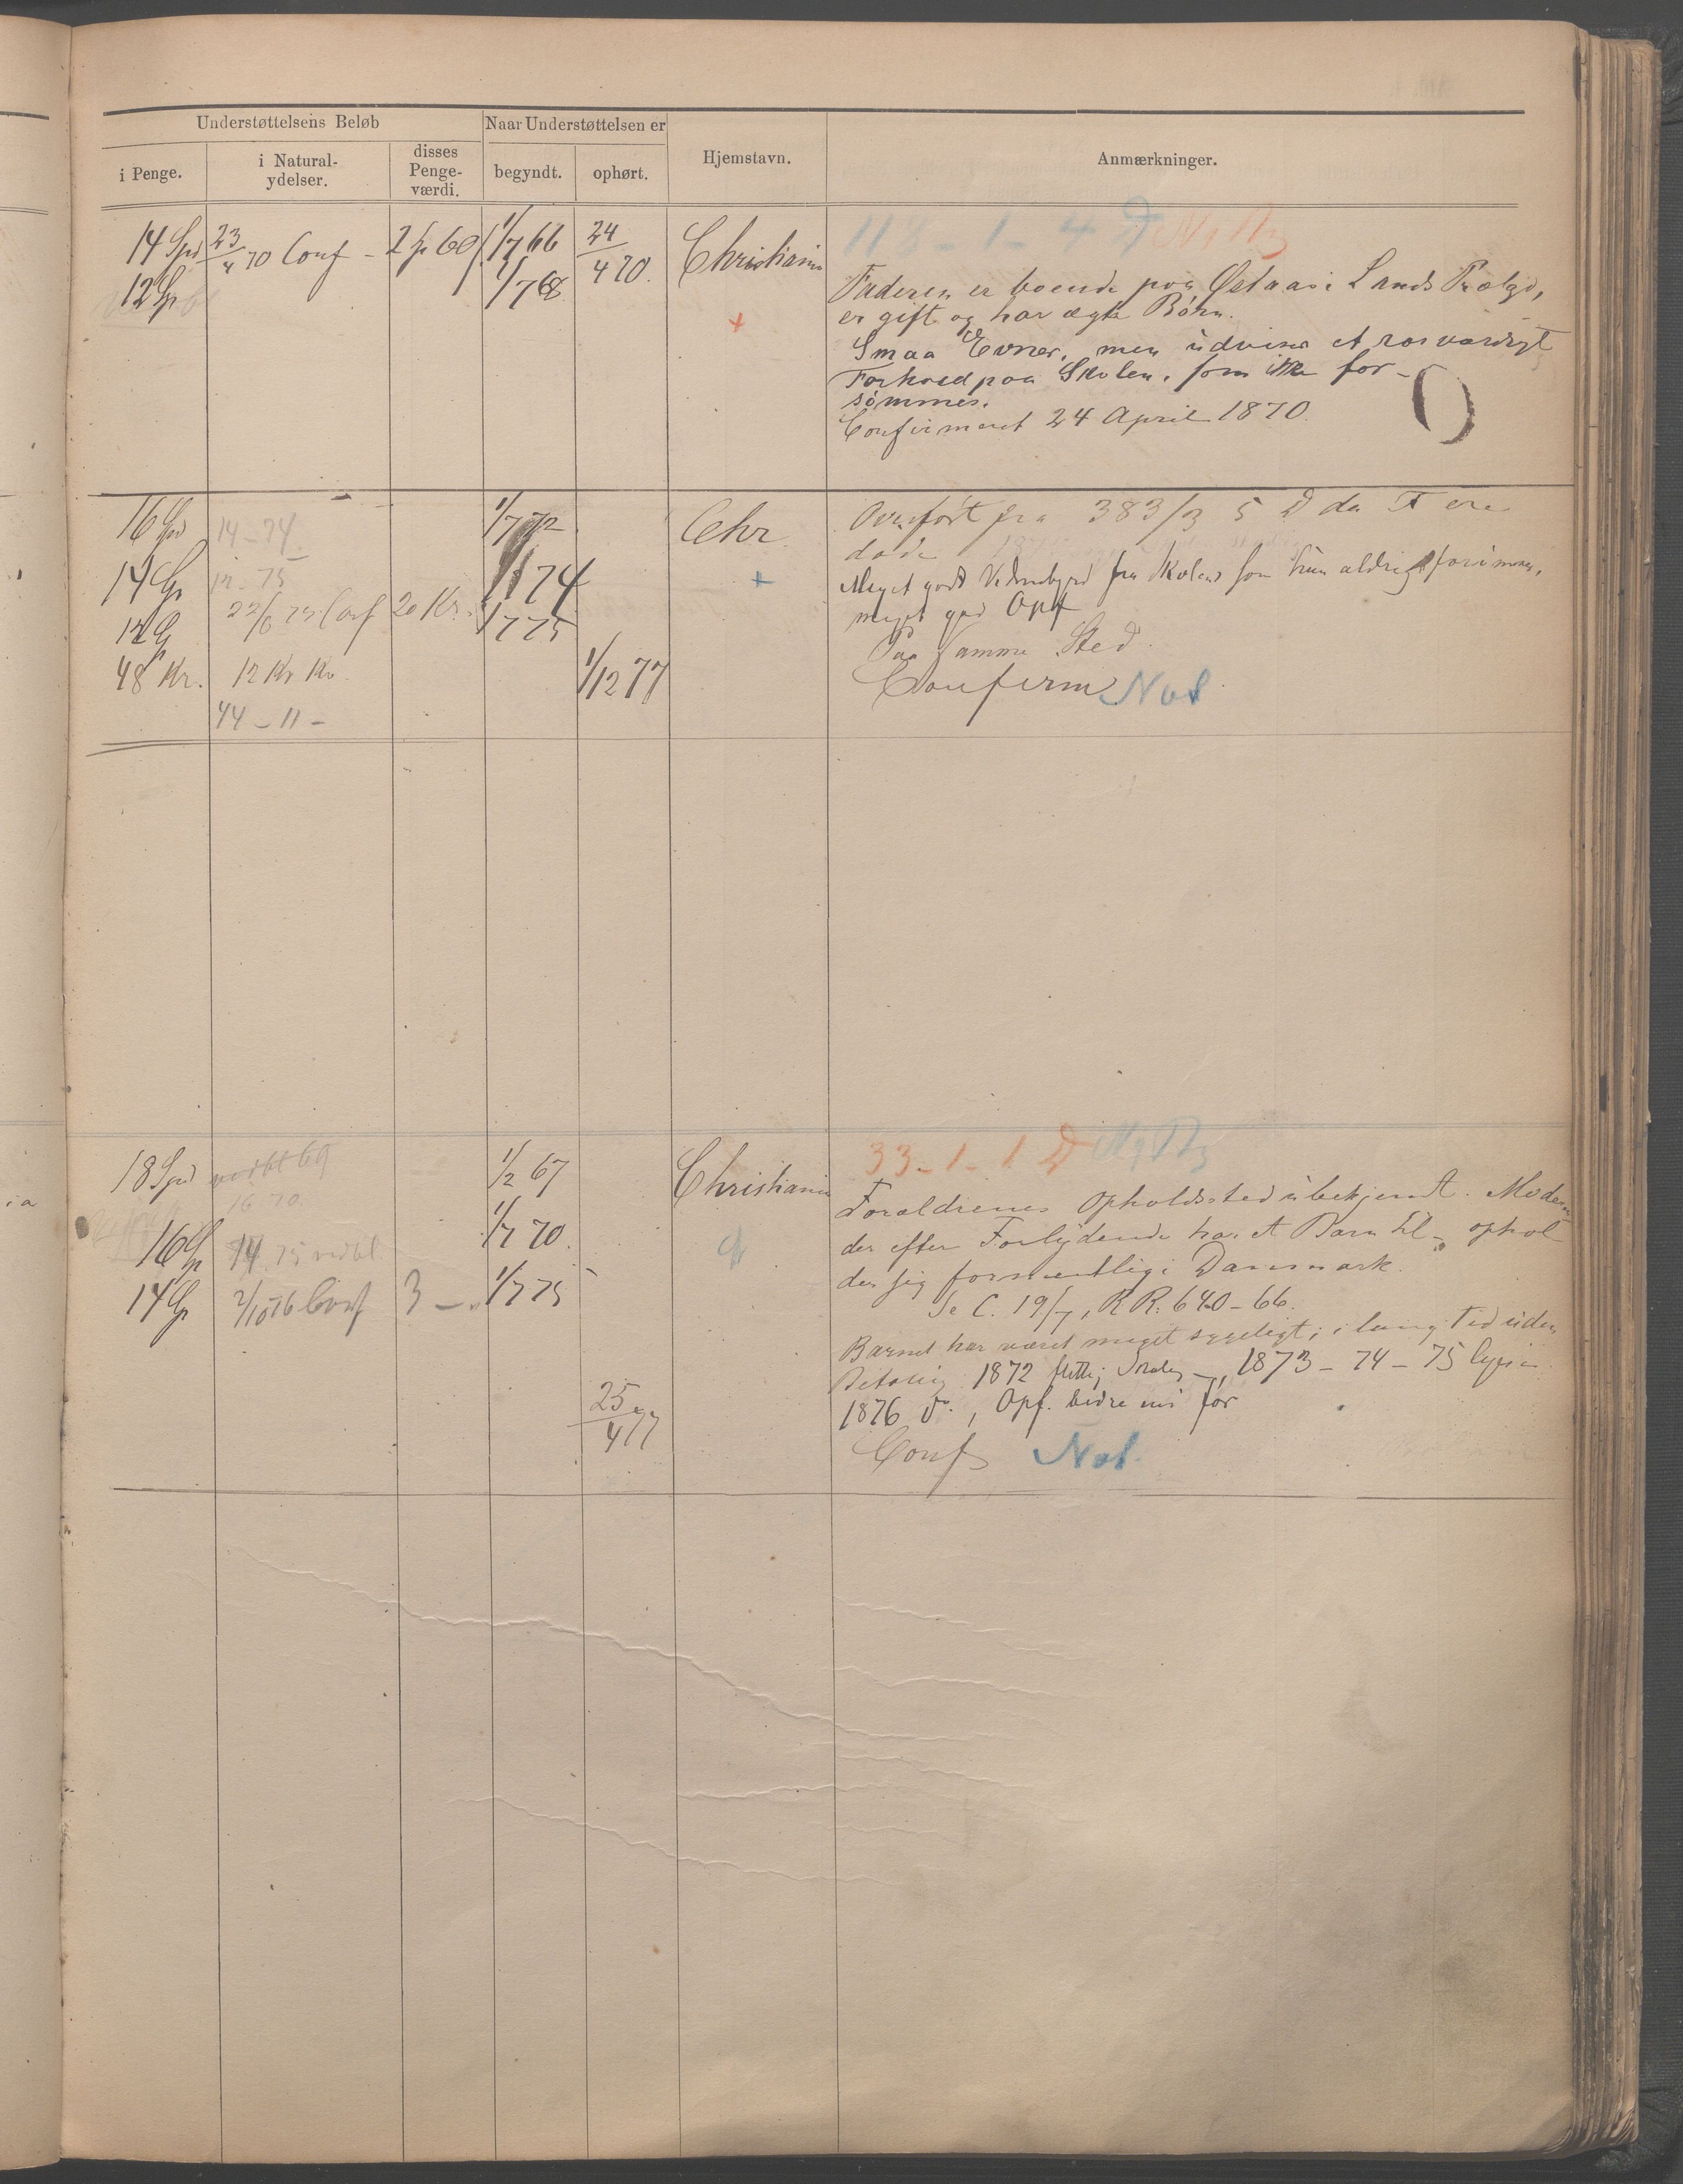 Understøttelsens Beløb Naar Understøttelsen er Hjemstavn. Anmærkninger.
i Penge. i Natural-ydelser. disses Penge-værdi. begyndt. ophørt.
14 Spd 23/4 70 Conf - 2 sp 60 1/7 66 24/4 70. Christiania
12 Sp 1/7 68
118 - 1 - 4 D
Faderen er boende paa Østaas i Lands Præstgd,
er gift og har ægte Børn.
Smaa Evner, men udviser et rosværdigt
Forhold paa Skolen, som ikke for-
sømmes.
Confirmeret 24 April 1870.
16 Spd 14 - 74. 1/7 72 Chr.
14 Sp 12 - 75 1/1 74
12 Sp 22/6 75 Conf 20 Kr. 1/7 75
48 Kr. 12 Kr Kv 1/12 77
44 - 11 -
Overført fra 383/3 5 D da F ere
døde
Meget godt Vidnesbyrd fra Skolen som hun aldrig forsømmer,
meget god Opf
Paa samme Sted.
Confirm Not
18 Spd vedbl 69 1/2 67 Christiania
16 70.
16 Sp 14. 75 vedbl 1/7 70.
14 Sp 2/10 76 Conf 3 - 1/7 75
25/4 77
33 - 1 - 1 D
Forældrenes Opholdssted ubekjendt. Moderen
der efter Forlydende har et Barn til, ophol
der sig formentlig i Danmark.
Se C. 19/7, RR: 640-66.
Barnet har været meget sygeligt; i lang Tid uden
1872 1873 - 74 - 75
1876 do., Opf. bedre end før
Conf Not.